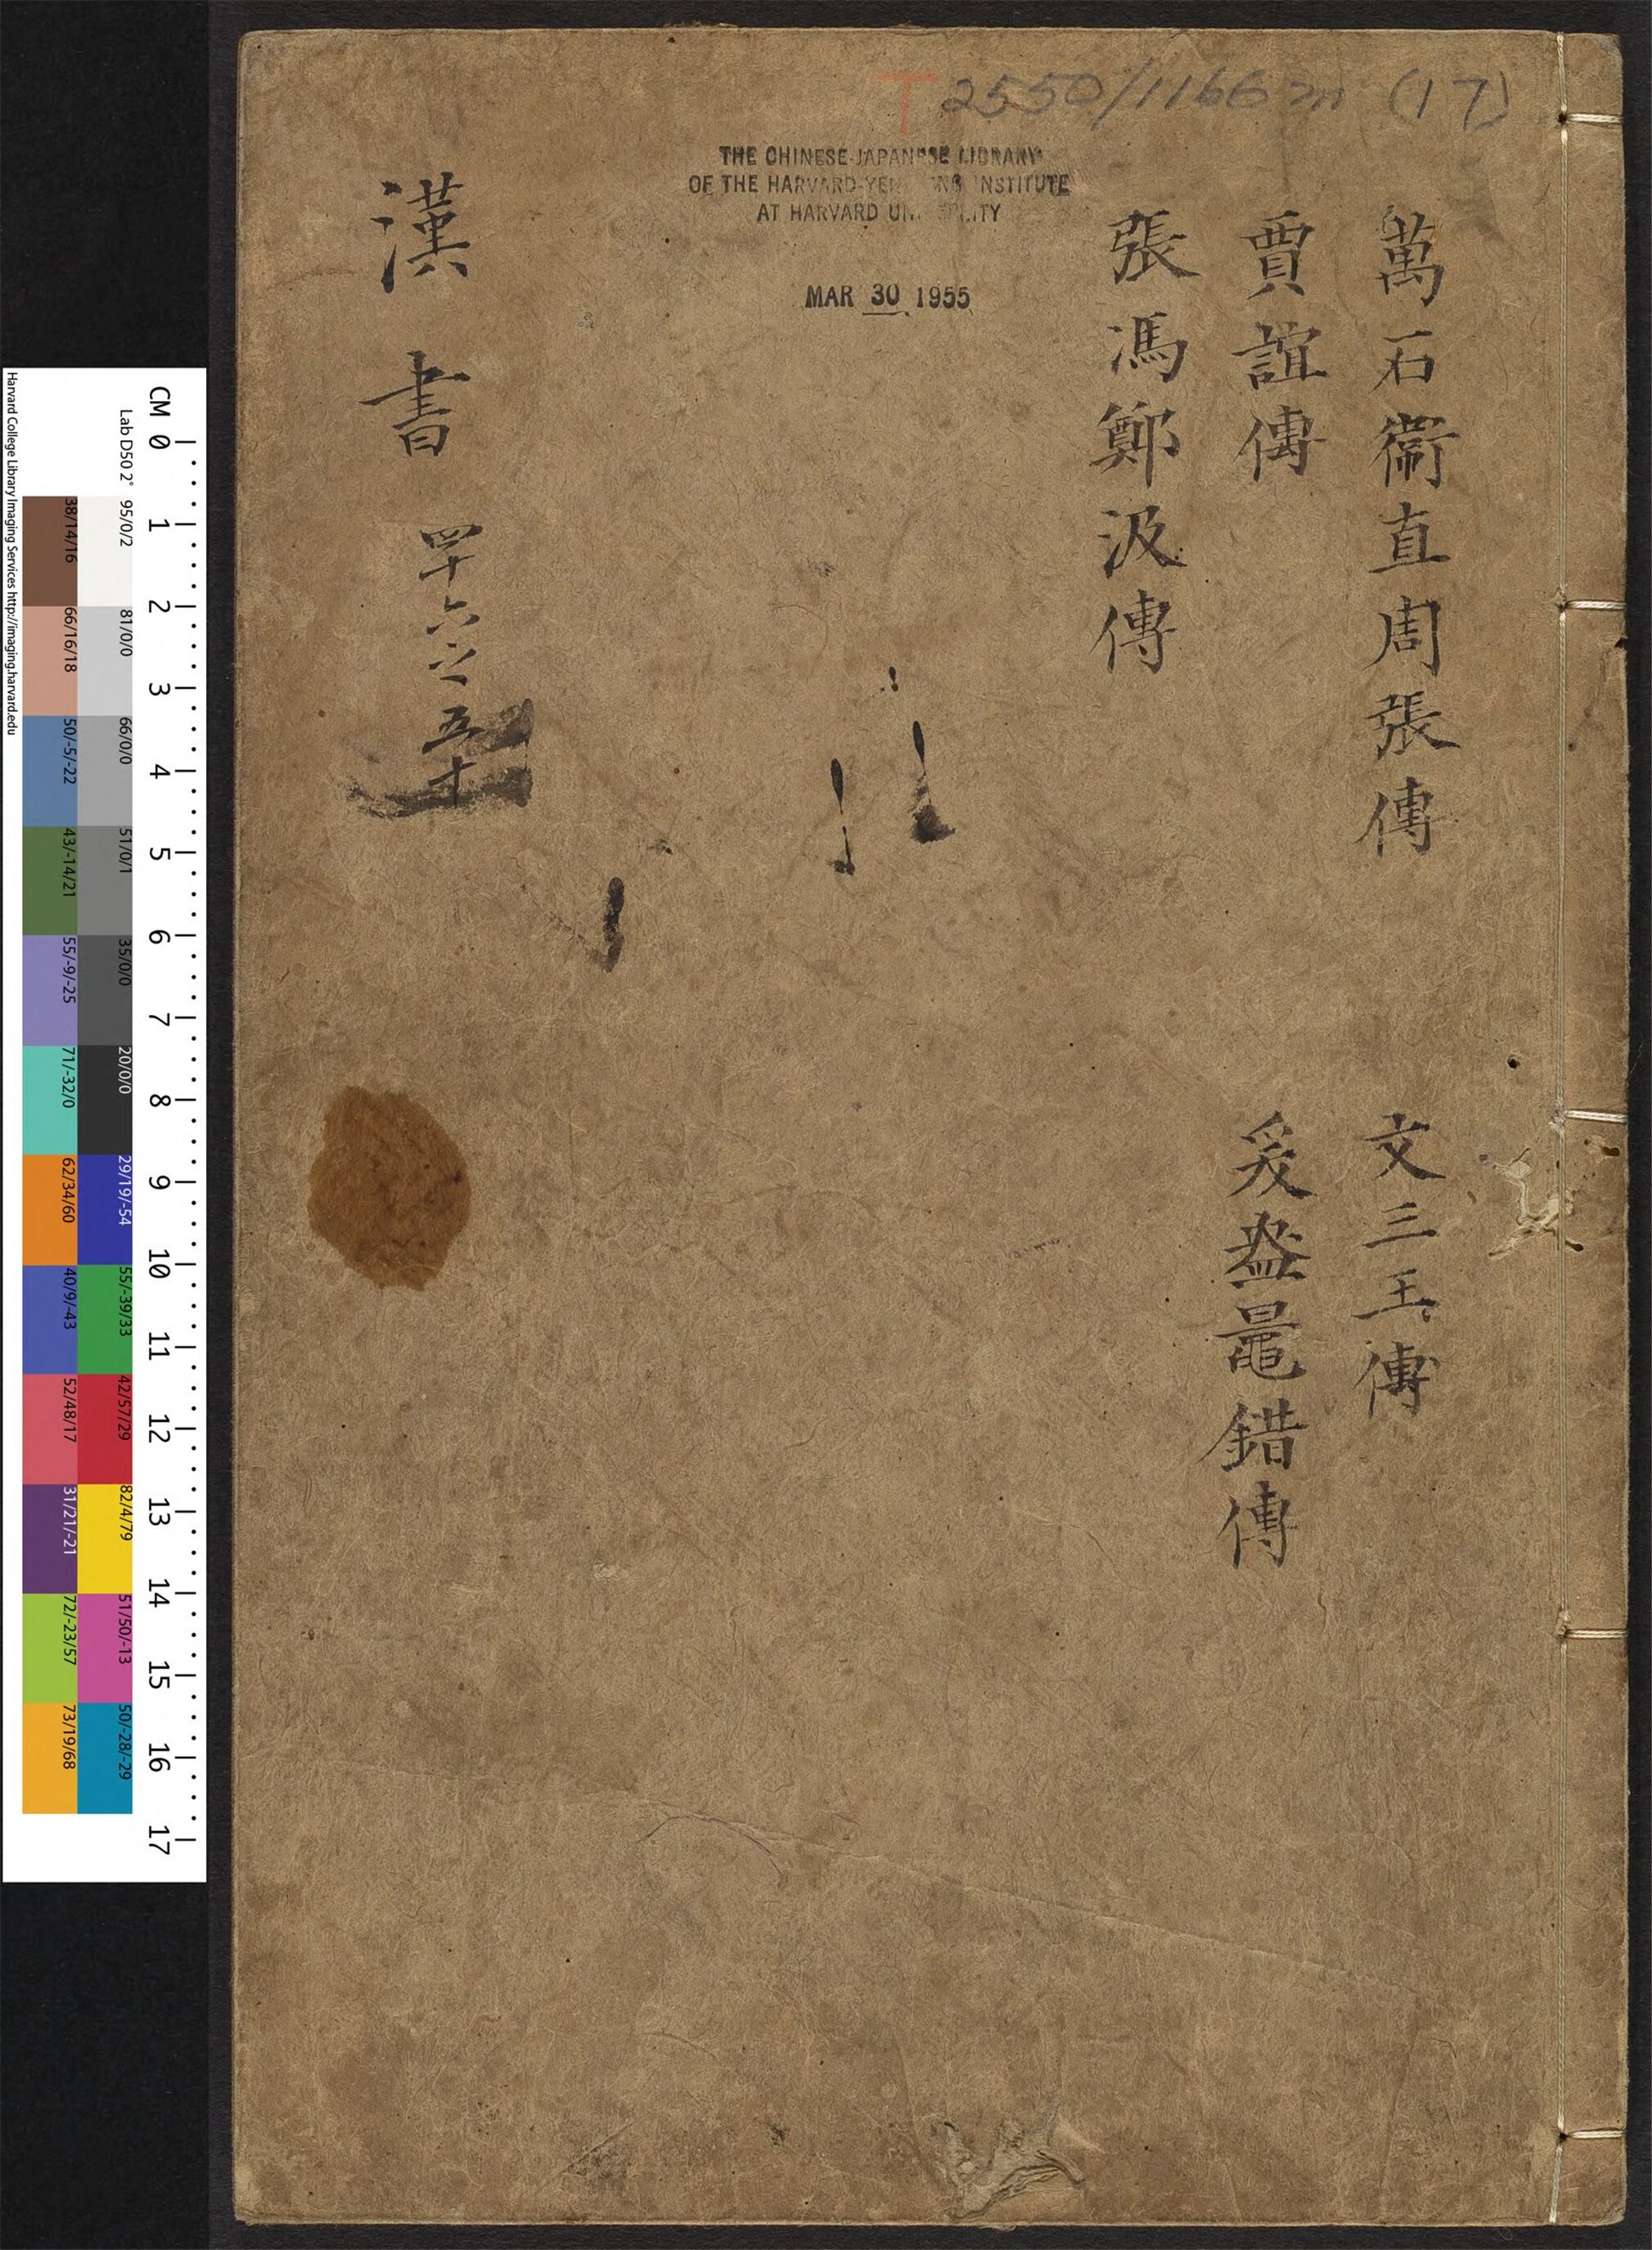 T 2550/1166 m (17)
THE CHINESE-JAPANESE LIBRARY
OF THE HARVARD-YENCHING INSTITUTE
AT HARVARD UNIVERSITY
MAR 30 1955
萬石衞直周張傳
文三王傳
賈誼傳
爰盎鼂錯傳
張馮鄭汲傳
漢書 四十六之五十
CM 0 1 2 3 4 5 6 7 8 9 10 11 12 13 14 15 16 17
Lab D50 2° 95/0/2 81/0/0 66/0/0 51/0/1 35/0/0 20/0/0 29/19/-54 55/-39/33 42/57/29 82/4/79 51/50/-13 50/-28/-29
38/14/16 66/16/18 50/-5/-22 43/-14/21 55/-9/-25 71/-32/0 62/34/60 40/9/-43 52/48/17 31/21/-21 72/-23/57 73/19/68
Harvard College Library Imaging Services http://imaging.harvard.edu